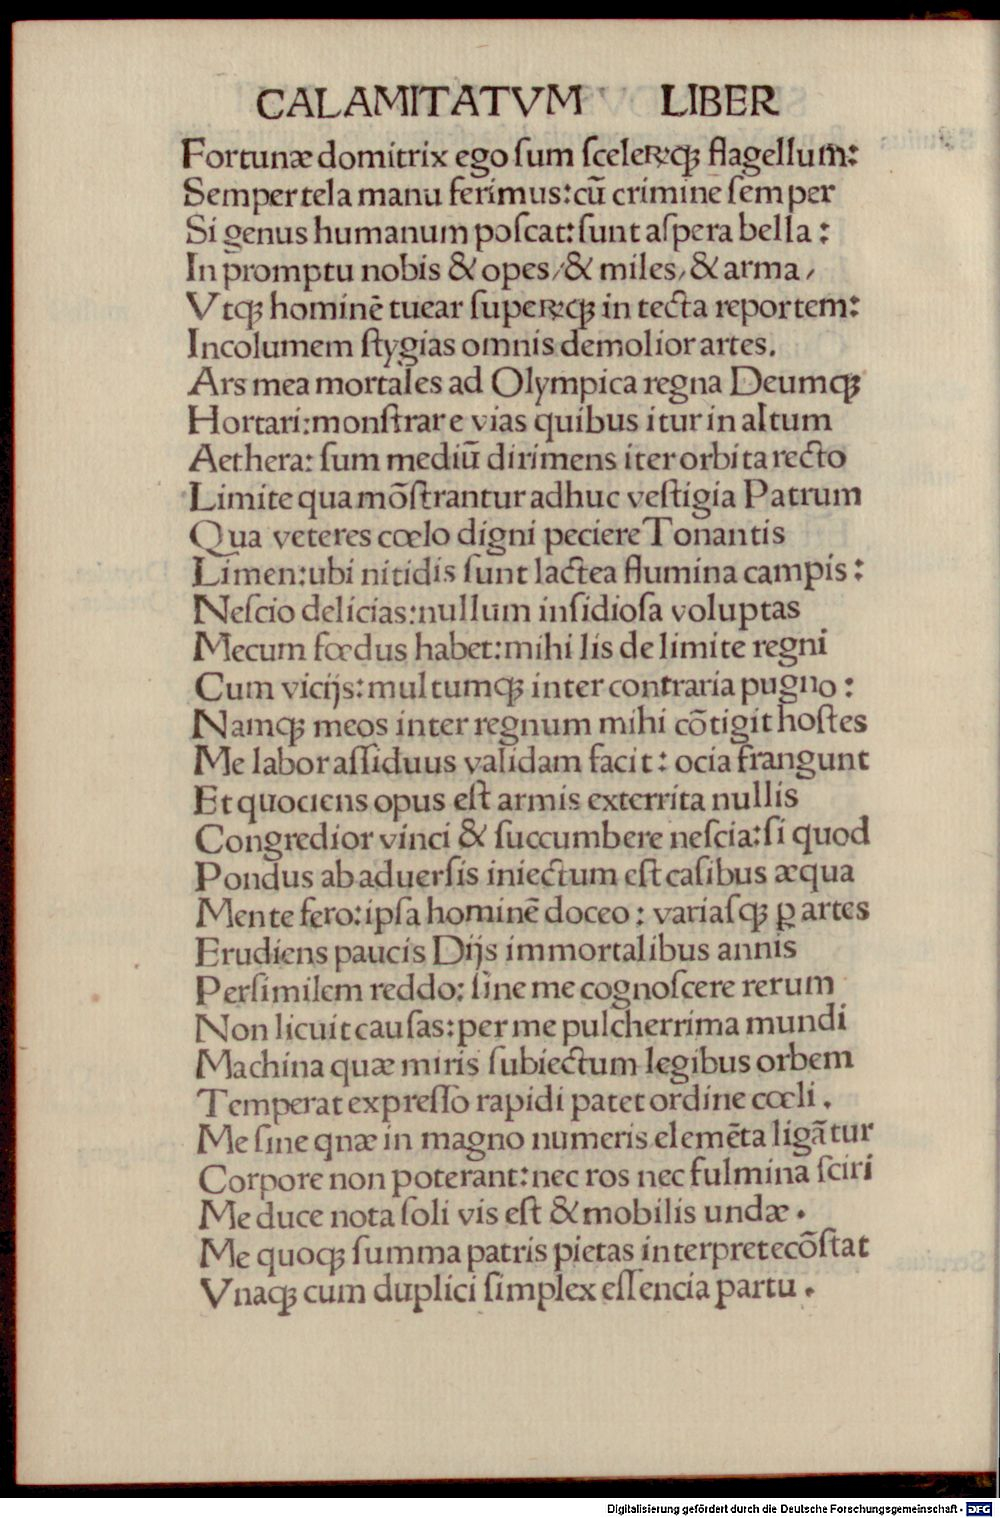 CALAMITATVM LIBER
Fortunæ domitrix ego ſum ſceleꝝꝙ flagellum:
Semper tela manu ferimus: cū crimine ſemper
Si genus humanum poſcat: ſunt aſpera bella:
In promptu nobis & opes/ & miles, & arma,
Vtꝙ hominē tuear ſupeꝝꝙ in tecta reportem:
Incolumem ſtygias omnis demolior artes.
Ars mea mortales ad Olympica regna Deumꝙ
Hortari: monſtrare vias quibus itur in altum
Aethera: ſum mediū dirimens iter orbita recto
Limite qua mōſtrantur adhuc veſtigia Patrum
Qua veteres cœlo digni peciere Tonantis
Limen: ubi nitidis ſunt lactea flumina campis:
Neſcio delicias: nullum inſidioſa voluptas
Mecum fœdus habet: mihi lis de limite regni
Cum vicijs: multumꝙ inter contraria pugno:
Namꝙ meos inter regnum mihi cōtigit hoſtes
Me labor aſſiduus validam facit: ocia frangunt
Et quociens opus eſt armis exterrita nullis
Congredior vinci & ſuccumbere neſcia: ſi quod
Pondus ab aduerſis iniectum eſt caſibus æqua
Mente fero: ipſa hominē doceo: variaſꝙ ꝑ artes
Erudiens paucis Dijs immortalibus annis
Perſimilem reddo: ſine me cognoſcere rerum
Non licuit cauſas: per me pulcherrima mundi
Machina quæ miris ſubiectum legibus orbem
Temperat expreſſo rapidi patet ordine cœli.
Me ſine qnæ in magno numeris elemēta ligātur
Corpore non poterant: nec ros nec fulmina ſciri
Me duce nota ſoli vis eſt & mobilis undæ.
Me quoꝙ ſumma patris pietas interprete cōſtat
Vnaꝙ cum duplici ſimplex eſſencia partu.
Digitalisierung gefördert durch die Deutsche Forschungsgemeinschaft - DFG